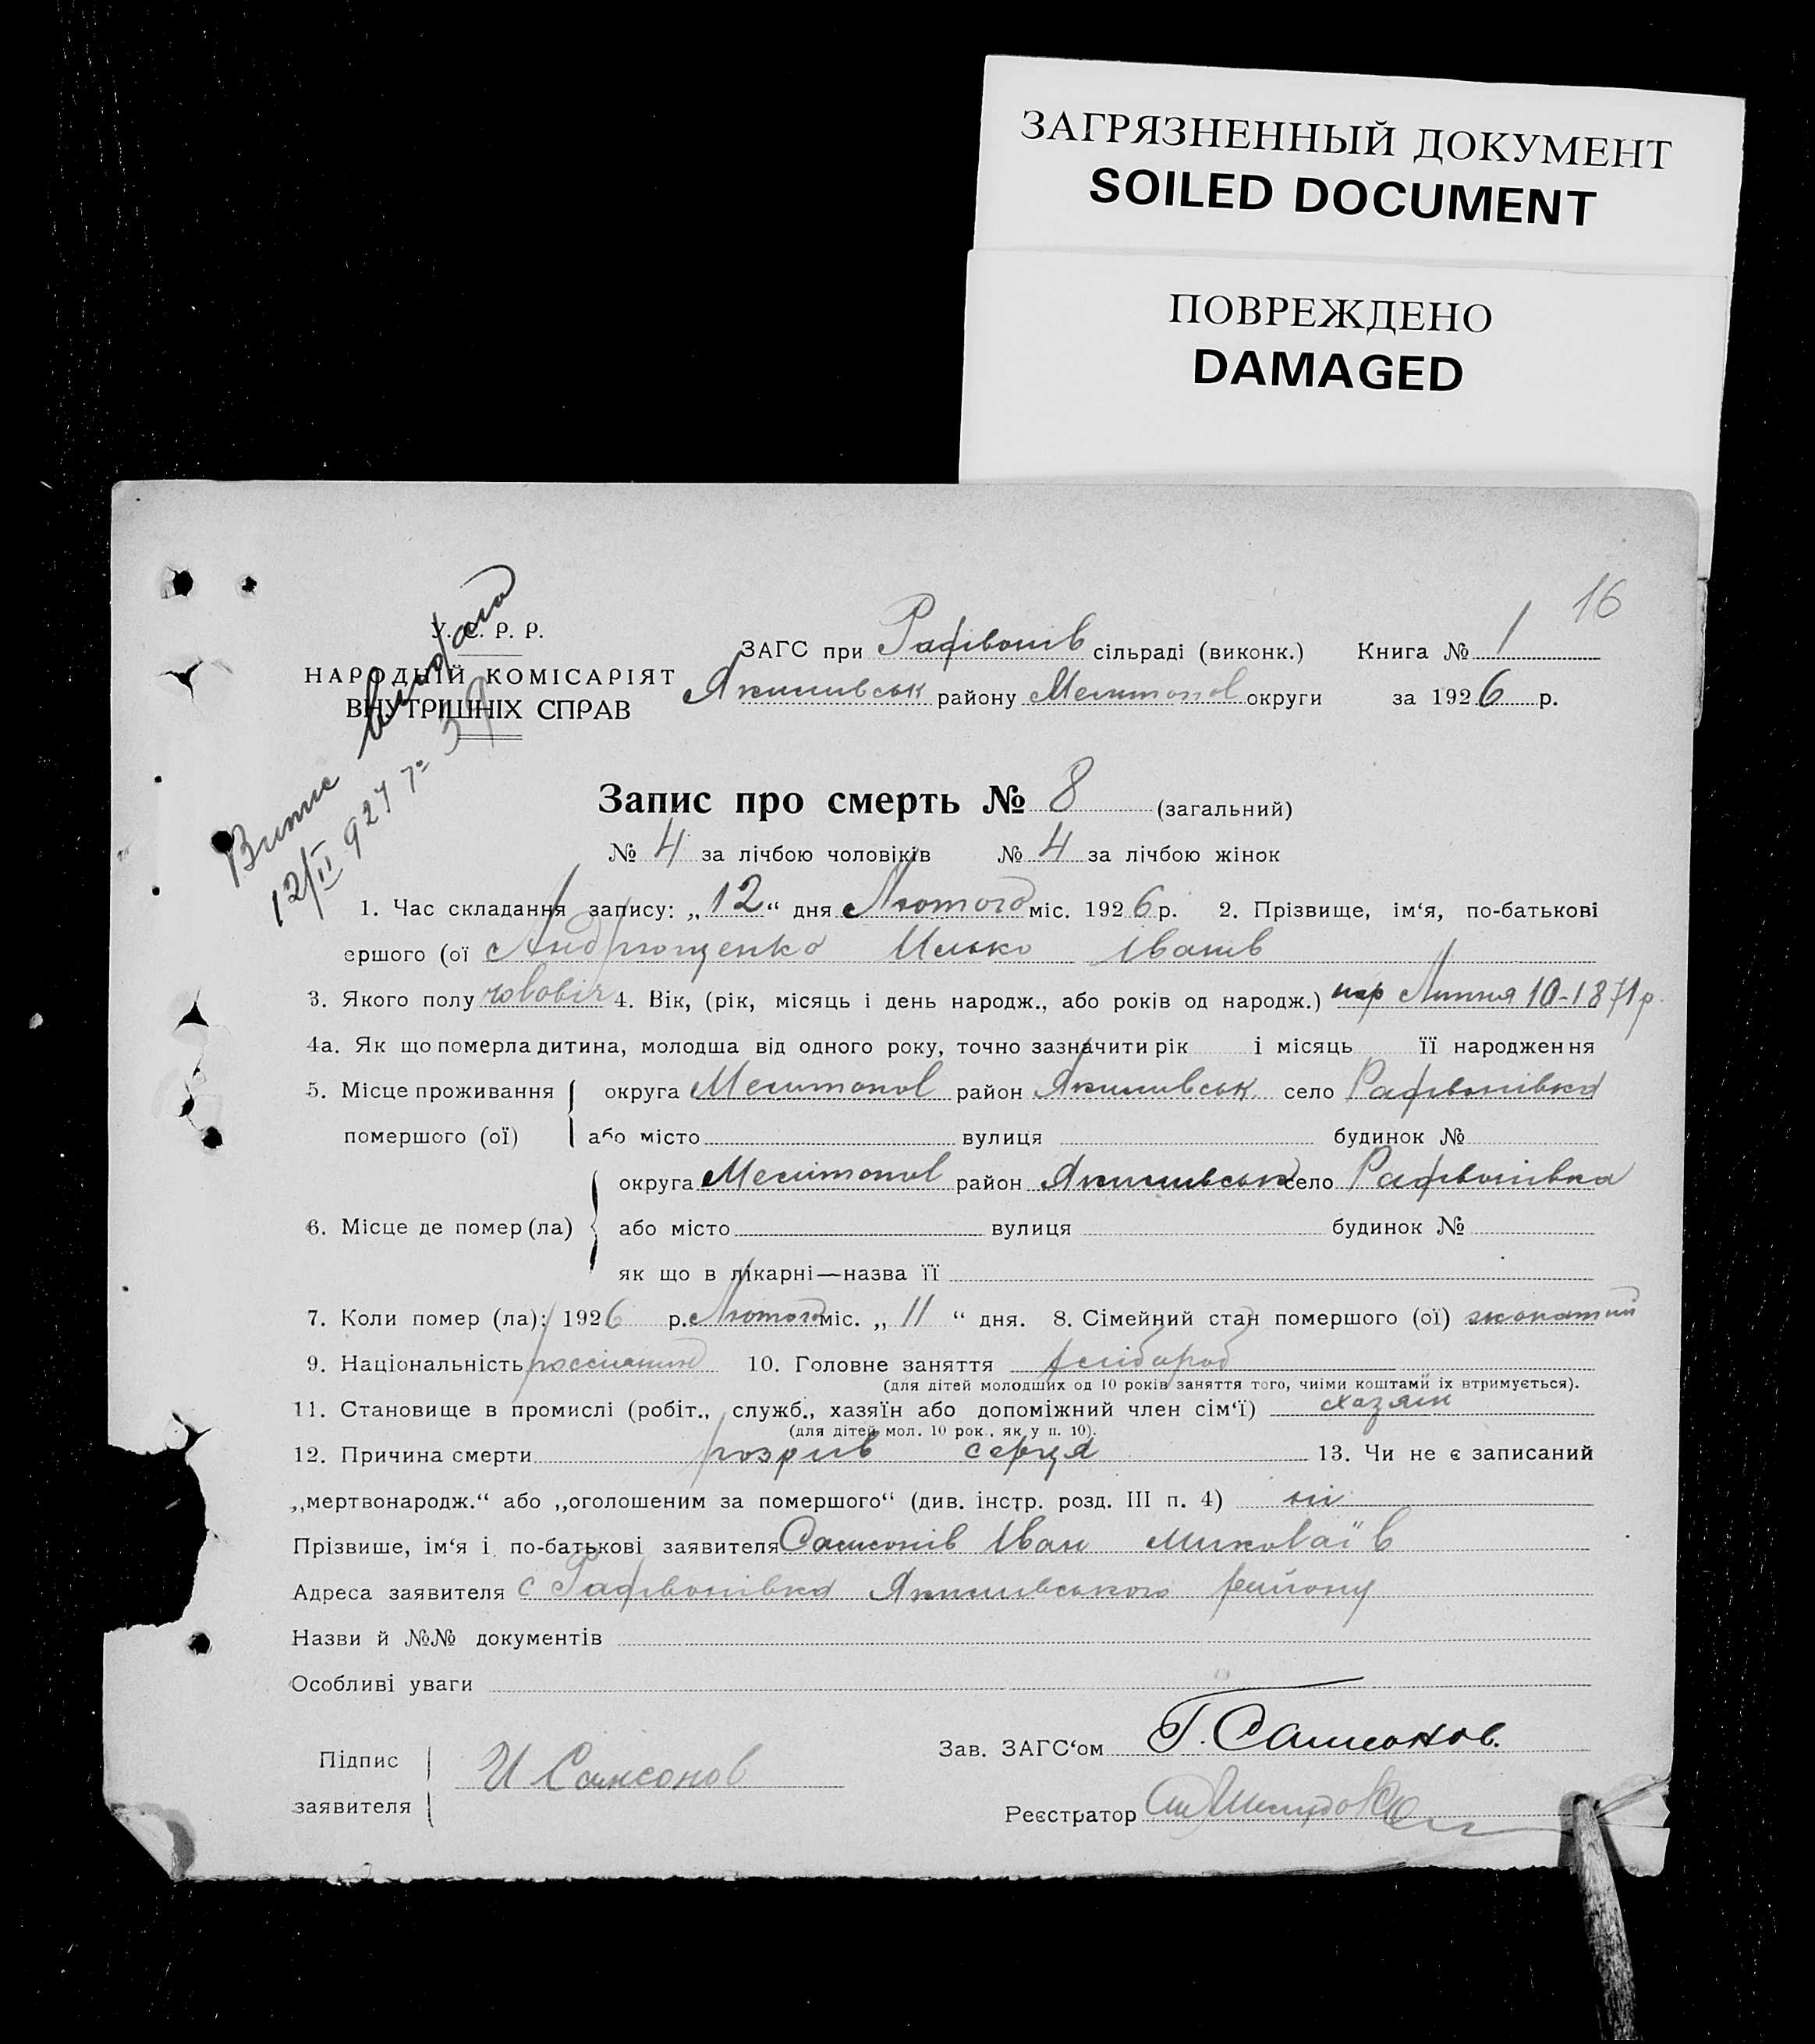 ЗАГРЯЗНЕННЫЙ ДОКУМЕНТ
SOILED DOCUMENT
ПОВРЕЖДЕНО
DAMAGED
16
У. С. Р. Р.
НАРОДНІЙ КОМІСАРІЯТ
ВНУТРІШНІХ СПРАВ
Витяг видано
12/II 927 р. 39
ЗАГС при Рафівонів сільраді (виконк.) Книга № 1
Якимівськ району Мелитопол округи за 1926 р.
Запис про смерть № 8 (загальний)
№ 4 за лічбою чоловіків № 4 за лічбою жінок
1. Час складання запису: „12“ дня Лютого міс. 1926 р. 2. Прізвище, ім‘я, по-батькові
ершого (ої Андрющенко Илько Іванів
3. Якого полу чоловіч 4. Вік, (рік, місяць і день народж., або років од народж.) нар Липня 10-1871 р.
4а. Як що померла дитина, молодша від одного року, точно зазначити рік і місяць її народження
5. Місце проживання округа Мелитопол район Якимівськ село Рафівонівка
помершого (ої) або місто вулиця будинок №
округа Мелітопол район Якимивськ село Рафівонівка
6. Місце де помер (ла) або місто вулиця будинок №
як що в лікарні—назва її
7. Коли помер (ла): 1926 р. Лютого міс. „11“ дня. 8. Сімейний стан помершого (ої) жонатий
9. Національність 10. Головне заняття хлібороб
(для дітей молодших од 10 років заняття того, чиїми коштами їх втримується).
11. Становище в промислі (робіт., служб., хазяїн або допоміжний член сім‘ї) хазяїн
(для дітей мол. 10 рок., як у п. 10).
12. Причина смерти розрив серця 13. Чи не є записаний
„мертвонародж.“ або „оголошеним за помершого“ (див. інстр. розд. III п. 4) ні
Прізвише, ім‘я і по-батькові заявителя Самсонів Іван Миколаїв
Адреса заявителя с Рафівонівка Якимивського району
Назви й №№ документів
Особливі уваги
Підпис заявителя И Самсонов
Зав. ЗАГС‘ом Г. Самсонов.
Реєстратор